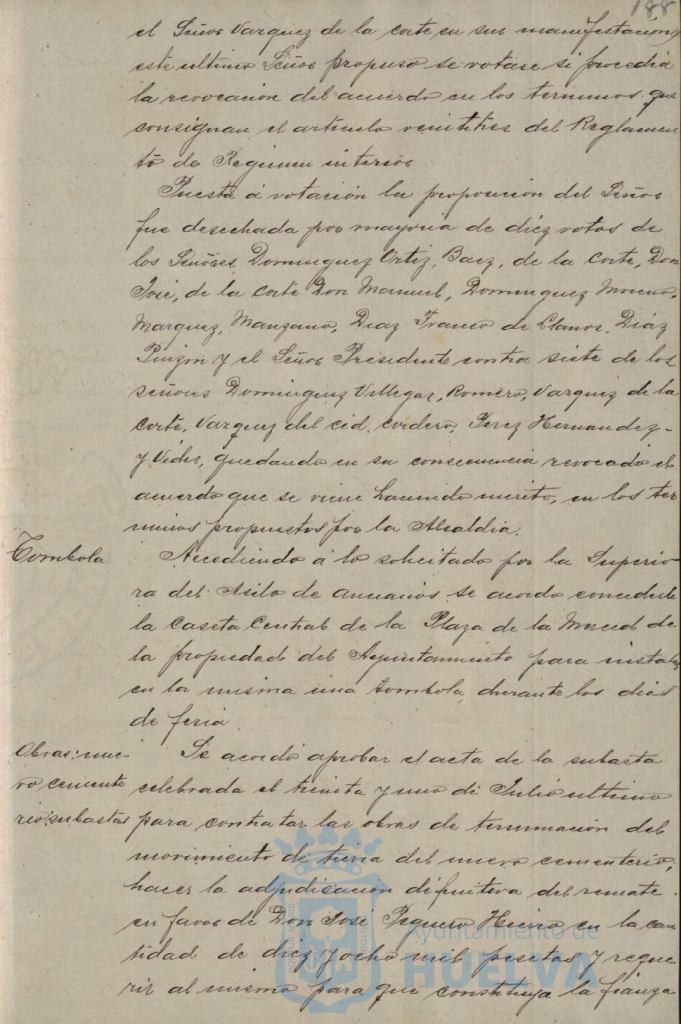 188
el Señor Vazquez de la Corte en sus manifestaciones
este ultimo Señor propuso se votase si procedia
la revocacion del acuerdo en los terminos que
consignan el articulo veintitres del Reglamen
to de Regimen interior
Puesta á votación la proposicion del Señor
fue desechada por mayoria de diez votos de
los Señores Dominguez Ortiz, Baez, de la Corte, Don
José, de la Corte Don Manuel, Dominguez Moreno,
Marquez, Manzano, Diaz Franco de Llanos, Diáz
Pinzon y el Señor Presidente contra siete de los
señores Dominguez Villegas, Romero, Vazquez de la
Corte, Vazquez del Cid, Cordero, Perez Hernandez
y Vides, quedando en su consecuencia revocado el
acuerdo que se viene haciendo merito, en los ter
minos propuestos por la Alcaldia.
Tombola
Accediendo á lo solicitado por la Superio-
ra del Asilo de ancianos se acordo concederle
la Caseta Central de la Plaza de la Merced de
la propiedad del Ayuntamiento para instalar
en la misma una tombola, durante los dias
de feria
Obras: nue-
vo cemente
rio: subastas
Se acordó aprobar el acta de la subasta
celebrada el treinta y uno de Julio ultimo
para contratar las obras de terminación del
movimiento de tierra del nuevo cementerio,
hacer la adjudicacion difinitiva del remate
en favor de Don José Peguero Hierro en la can
tidad de diez y ocho mil pesetas y reque
rir al mismo para que constituya la fianza
Ayuntamiento de
HUELVA